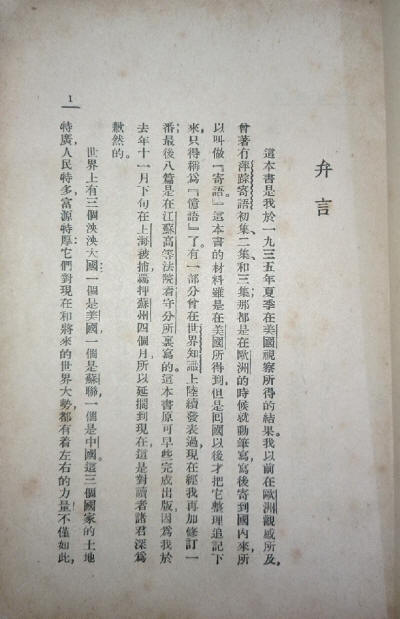 弁言
這本書是我於一九三五年夏季在美國視察所得的結果。我以前在歐洲觀感所及,
曾著有萍踪寄語初集、二集和三集,那都是在歐洲的時候就動筆寫,寫後寄到國內來,所
以叫做『寄語』。這本書的材料雖是在美國所得到,但是回國以後才把它整理追記下
來,只得稱爲『憶語』了。有一部分曾在世界知識上陸續發表過,現在經我再加修訂一
番;最後八篇是在江蘇高等法院看守分所裏寫的。這本書原可早些完成出版,因爲我於
去年十一月下旬在上海被捕,羈押蘇州四個月,所以延擱到現在,這是對讀者諸君深爲
歉然的。
世界上有三個泱泱大國:一個是美國,一個是蘇聯,一個是中國。這三個國家的土地
特廣,人民特多,富源特厚;它們對現在和將來的世界大勢,都有着左右的力量。不僅如此,
1